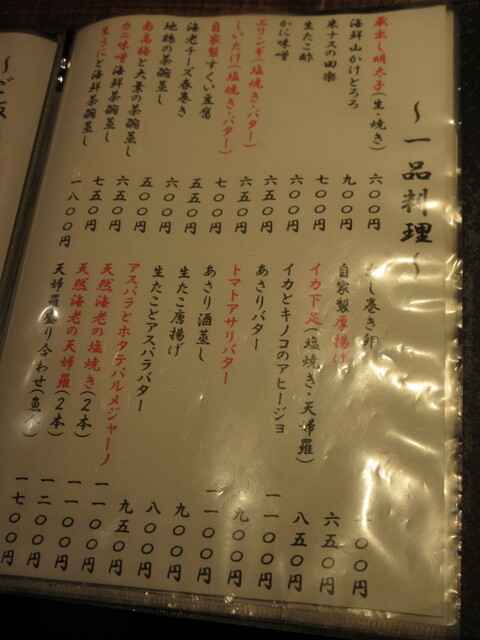 ～一品料理～
蔵出し明太子(生・焼き) 六〇〇円
海鮮山かけとろろ 九〇〇円
米ナスの田楽 七〇〇円
生たこ酢 六〇〇円
かに味噌 六五〇円
エリンギ(塩焼き・バター) 六五〇円
しいたけ(塩焼き・バター) 七〇〇円
自家製すくい豆腐 五五〇円
海老チーズ春巻き 六〇〇円
地鶏の茶碗蒸し 五〇〇円
南高梅と大葉の茶碗蒸し 六五〇円
カニ味噌海鮮茶碗蒸し 七五〇円
生うにと海鮮茶碗蒸し 一八〇〇円
だし巻き卵
自家製厚揚げ 六五〇円
イカ下足(塩焼き・天婦羅) 八五〇円
イカとキノコのアヒージョ 一一〇〇円
あさりバター 九〇〇円
トマトアサリバター 一一〇〇円
あさり酒蒸し 九〇〇円
生たこ唐揚げ 八〇〇円
生たことアスパラバター 九五〇円
アスパラとホタテパルメジャーノ 一一〇〇円
天然海老の塩焼き(2本) 一一〇〇円
天然海老の天婦羅(2本) 一二〇〇円
天婦羅盛り合わせ 一七〇〇円
～ご飯